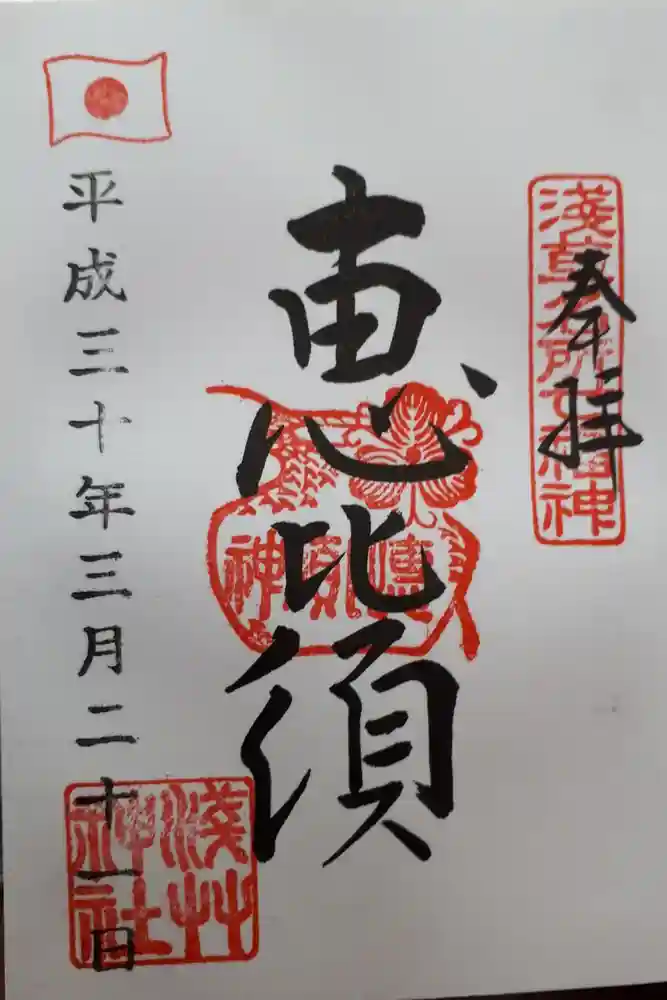 奉拝
淺草名所七福神
恵比須
恵比須神
平成三十年三月二十一日
淺草神社